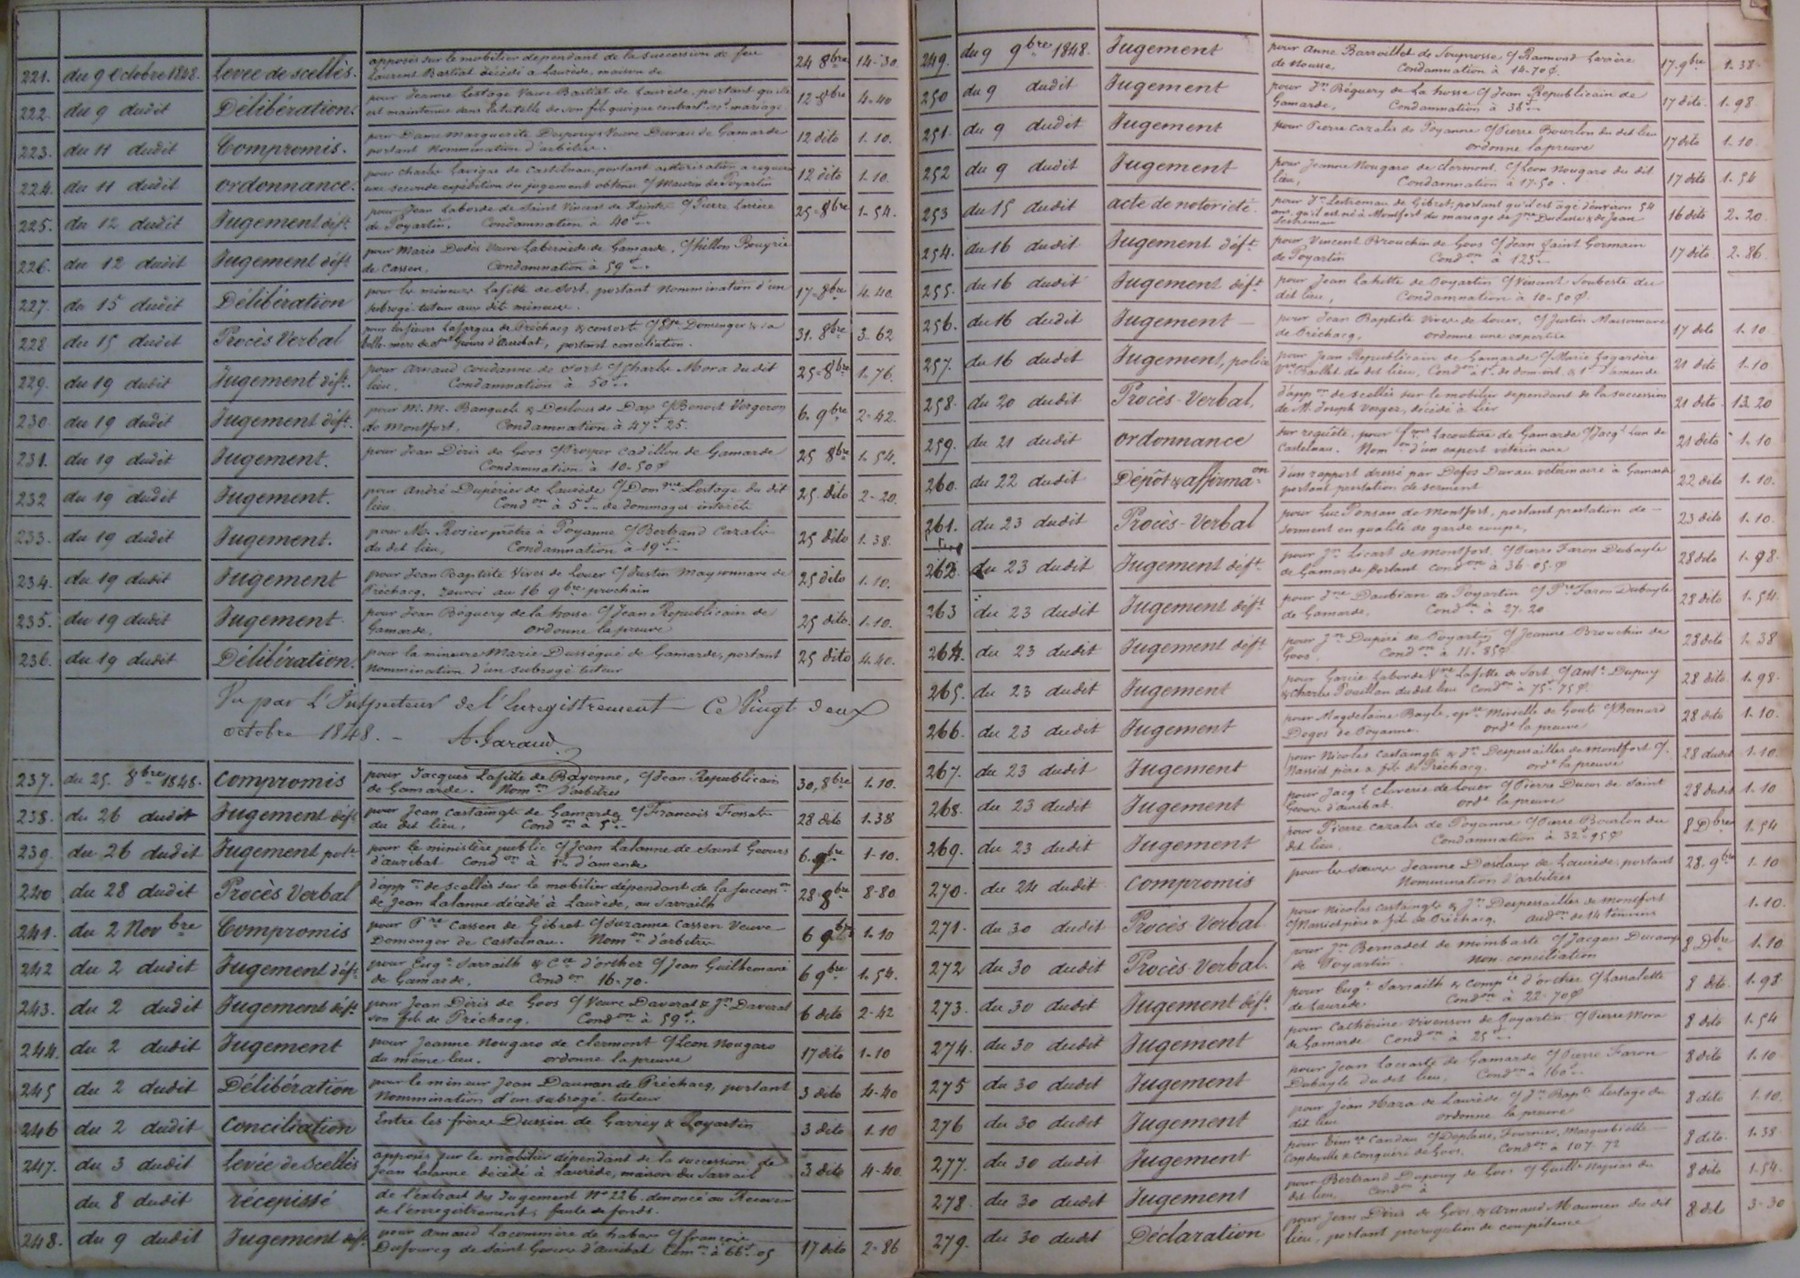 221. du 9 Octobre 1848. Levée de scellés. apposés sur le mobilier dépendant de la succession de feu 24 8bre 14-30
Laurent Bastiat décédé à Laurède, maison de
222. du 9 dudit Délibération. pour Jeanne Lestage Veuve Bastiat de Laurède, portant qu'elle 12 8bre 4-40
est maintenue dans la tutelle de son fils quoique mariage
223. du 11 dudit Compromis. pour Dame Marguerite Veuve de Gamarde 12 dito 1-10.
portant Nomination d'arbitre.
224. du 11 dudit ordonnance. pour Charles Lavigne de Castelnau, portant autorisation a requerir 12 dito 1-10.
une seconde expédition du jugement obtenu c/ Maurin de Poyartin
225. du 12 dudit Jugement déft. pour Jean Laborde de Saint Vincent de Xaintes c/ Pierre Larrère 25-8bre 1-54.
de Poyartin. Condamnation à 40f
226. du 12 dudit Jugement déft pour Marie Dudès Veuve de Gamarde,
de Cassen, Condamnation à 59f
227. du 15 dudit Délibération pour les mineurs Lafitte de Sort, portant Nomination d'un 17-8bre 4-40
subrogé tuteur aux dits mineurs.
228 du 15 dudit Procès Verbal pour Lafargue de Préchacq & consort 31. 8bre 3-62
belle-mère de d'Auribat, portant conciliation.
229. du 19 dudit Jugement déft. pour Arnaud coudanne de Sort c/ Charles Mora du dit 25-8bre 1-76.
lieu. Condamnation à 50f
230. du 19 dudit Jugement déft. pour M. M. Banquels & Deslous de Dax c/ Benoit Vergeron 6. 9bre 2-42.
de Montfort. Condamnation à 47f 25.
231. du 19 dudit Jugement. pour Jean Déris de Goos c/ Prosper Cadillon de Gamarde 25 8bre 1-54.
Condamnation à 10-50
232 du 19 dudit Jugement. pour André Dupérier de Laurède c/ Domque Lestage du dit 25 dito 2-20.
lieu. Condon à 5f de dommages intérêts
233. du 19 dudit Jugement. pour Mr. Rosier prêtre à Poyanne c/ Bertrand Cazalis 25 dito 1-38.
du dit lieu, Condamnation à 19f
234. du 19 dudit Jugement pour Jean Baptiste Vives de Louer c/ Justin Maysonnave de 25 dito 1-10.
Préchacq. renvoi au 16 9bre prochain
235. du 19 dudit Jugement. pour Jean Béguery de la hosse c/ Jean Republicain de 25 dito. 1-10.
Gamarde. Ordonne la preuve
236. du 19 dudit Délibération. pour la mineure Marie Dusségué de Gamarde, portant 25 dito 4-40.
Nomination d'un subrogé tuteur
Vu par l'Inspecteur de l'Enregistrement Ce Vingt deux
octobre 1848. - A. Garaud
237. du 25. 8bre 1848. Compromis pour Jacques Lafitte de Bayonne, c/ Jean Republicain 30, 8bre 1-10.
de Gamarde. Nomon d'arbitres
238. du 26 dudit Jugement déft pour Jean Castaingts de Gamarde c/ François Fonsat 28 dito 1-38
du dit lieu, Condon à 5f
239. du 26 dudit Jugement polce pour le ministère public c/ Jean Lalanne de Saint Geours 6. 9bre 1-10.
d'auribat Condon à 1f d'amende
240 du 28 dudit Procès Verbal d'appon de scellés sur le mobilier dépendant de la succon 28 8bre 8-80
de Jean Lalanne décédé à Laurède, au Sarrailh
241. du 2 Novbre Compromis pour Pre Cassen de Gibret c/ Suzanne Cassen Veuve 6 9bre 1-10
Domenger de Castelnau. Nomon d'arbitre
242 du 2 dudit Jugement déft. pour Eugne Sarrailh & Cie d'orthez c/ Jean Guilhemané 6 9bre 1-54.
de Gamarde. Condon 16-70.
243. du 2 dudit Jugement déft pour Jean Déris de Goos c/ Veuve Daverat & Jn Daverat 6 dito 2-42
son fils de Préchacq. Condon à 59f
244. du 2 dudit Jugement pour Jeanne Nougaro de Clermont c/ Léon Nougaro 17 dito 1-10
du même lieu. ordonne la preuve
245 du 2 dudit Délibération pour le mineur Jean Daunan de Préchacq, portant 3 dito 4-40
Nomination d'un subrogé-tuteur
246 du 2 dudit Conciliation Entre les frères Dussin de Garrey & Poyartin 3 dito 1-10
247. du 3 dudit Levée de Scellés apposés sur le mobilier dépendant de la succession de 3 dito 4-40.
Jean Lalanne décédé à Laurède, maison du Sarrail
du 8 dudit récepissé de l'extrait du Jugement No 226 dénoncé au Receveur
de l'enregistrement, faute de fonds.
248. du 9 dudit Jugement déft pour Arnaud Lacommère de habas c/ françois 17 dito 2-86
Dufourcq de Saint Geours d'Auribat Comon à 66f. 05
249. du 9 9bre 1848. Jugement pour Anne Barroillet de Souprosse, c/ Raymond Larrère 17. 9bre 1-38
de Nousse, Condamnation à 14-70
250 du 9 dudit Jugement pour Jn Béguery de La hosse c/ Jean Republicain de 17 dito. 1-98
Gamarde, Condamnation à 38f
251. du 9 dudit Jugement pour Pierre Cazalis de Poyanne c/ Pierre Bourlon du dit lieu 17 dito 1-10.
ordonne la preuve
252 du 9 dudit Jugement pour Jeanne Nougaro de Clermont. c/ Léon Nougaro du dit 17 dito 1-54
lieu, Condamnation à 17-50.
253 du 15 dudit acte de notoriété pour Jn Lestreman de Gibret, portant qu'il est âgé d'environ 54 16 dito 2-20.
ans, qu'il est né à Montfort du mariage de & de Jean
Lestreman
254. du 16 dudit Jugement déft. pour Vincent Brouchin de Goos c/ Jean Saint Germain 17 dito 2-86
de Poyartin Condon à 125f
255. du 16 dudit Jugement déft pour Jean Lahitte de Poyartin c/ Vincent Souberbe du
dit lieu, Condamnation à 10-50
256. du 16 dudit Jugement pour Jean Baptiste Vives de Louer, c/ Justin Maisonnave 17 dito 1-10
de Préchacq, ordonne une expertise
257. du 16 dudit Jugement, police pour Jean Republicain de Gamarde c/ Marie Lagardère 21 dito 1-10
Vve du dit lieu, Condon à 1f. de dom. int. & 1f d'amende
258. du 20 dudit Procès-Verbal. d'appon de scellés sur le mobilier dépendant de la succession 21 dito 13-20
de Mr Joseph Verges, décédé à Lier
259. du 21 dudit ordonnance sur requête, pour Lacouture de Gamarde c/ Jacqs Lun de 21 dito 1-10
Castelnau. Nomon d'un expert vétérinaire
260. du 22 dudit Dépôt & affirmaon d'un rapport dressé par Defos Durau vétérinaire à Gamarde 22 dito 1-10.
portant prestation de serment
261. du 23 dudit Procès-Verbal pour Luc Ponsan de Montfort, portant prestation de 23 dito 1-10.
serment en qualité de garde
262. du 23 dudit Jugement déft. pour Jn Licart de Montfort. c/ Pierre Faron Dubayle 28 dito 1-98
de Gamarde portant Condon à 36 05
263 du 23 dudit Jugement déft. pour Daubian de Poyartin c/ Pre Faron Dubayle 28 dito 1-54.
de Gamarde. Condon à 27-20
264. du 23 dudit Jugement déft pour Jn Dupéré de Poyartin c/ Jeanne Brouchin de 28 dito 1-38
Goos. Condon à 11f 85
265. du 23 dudit Jugement pour Garrie Laborde Vve Lafitte de Sort c/ Ante Dupuy 28 dito 1-98.
& Charles Pouillon du dit lieu Condon à 75f 75
266. du 23 dudit Jugement pour Magdelaine Bayle, épse Minvielle de Gouts c/ Bernard 28 dito 1-10.
Degos de Poyanne. ordne la preuve
267. du 23 dudit Jugement pour Nicolas Castaingts & Jn Despessailles de Montfort c/ 28 dudit 1-10.
Massiet père & fils de Préchacq. ordne la preuve
268. du 23 dudit Jugement pour Jacqs Claverie de Louer c/ Pierre Ducos de Saint 28 dudit 1-10
Geours d'auribat. ordne la preuve
269. du 23 dudit Jugement pour Pierre Cazalis de Poyanne c/ Pierre Bourlon du 8 Dbre 1-54
dit lieu. Condamnation à 32f 95
270. du 24 dudit Compromis pour les Jeanne Darolany de Laurède, portant 28. 9bre 1-10
Nomination d'arbitres
271. du 30 dudit Procès Verbal pour Nicolas Castaingts & Jn Despessailles de Montfort 1-10.
c/ Massiet père & fils de Préchacq, Audon de 14 témoins
272 du 30 dudit Procès-Verbal. pour Jn Bernadet de mimbaste c/ Jacques Ducamp 8 Dbre 1-10
de Poyartin. Non-conciliation
273. du 30 dudit Jugement déft. pour Eugne Sarrailh & Compie d'orthez c/ Lassalette 8 dito. 1-98
de Laurède. Condon à 22-70
274. du 30 dudit Jugement pour Cathérine Vivenson de Poyartin c/ Pierre Mora 8 dito 1-54
de Gamarde Condon à 25f
275 du 30 dudit Jugement pour Jean Lacoste de Gamarde c/ Pierre Faron 8 dito 1-10
Dubayle du dit lieu. Condon à 160f
276 du 30 dudit Jugement pour Jean Haza de Laurède c/ Jn Bapte Lestage du 8 dito 1-10.
dit lieu ordonne la preuve
277. du 30 dudit Jugement pour Candau c/ Dephanc, Fournier, 8 dito. 1-38.
Capdeville & Conquéré de Goos. Condon à 107-72
278. du 30 dudit Jugement pour Bertrand Dupouy de Goos c/ Guille du 8 dito 1-54.
dit lieu, Condon à
279. du 30 dudit Déclaration pour Jean Déris de Goos, & Arnaud Maumen du dit 8 dito 3-30
lieu, portant prorogation de compétence